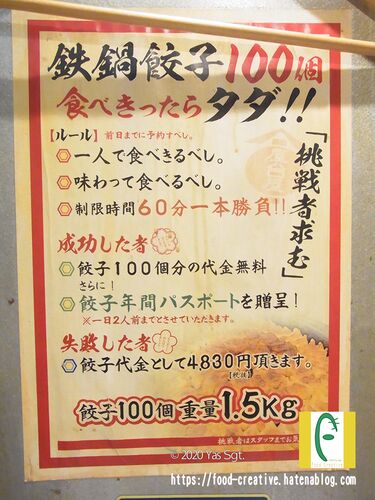 鉄鍋餃子100個
食べきったらタダ!!
【ルール】前日までに予約すべし。
一人で食べきるべし。
味わって食べるべし。
制限時間60分一本勝負!!
「挑戦者求む」
成功した者
餃子100個分の代金無料
さらに!
餃子年間パスポートを贈呈!
※一日2人前までとさせていただきます。
失敗した者
餃子代金として4,830円頂きます。
【税抜】
餃子100個 重量1.5Kg
挑戦者はスタッフまでお気
© 2020 Yas Sgt.
Food Creative
https://food-creative.hatenablog.com/